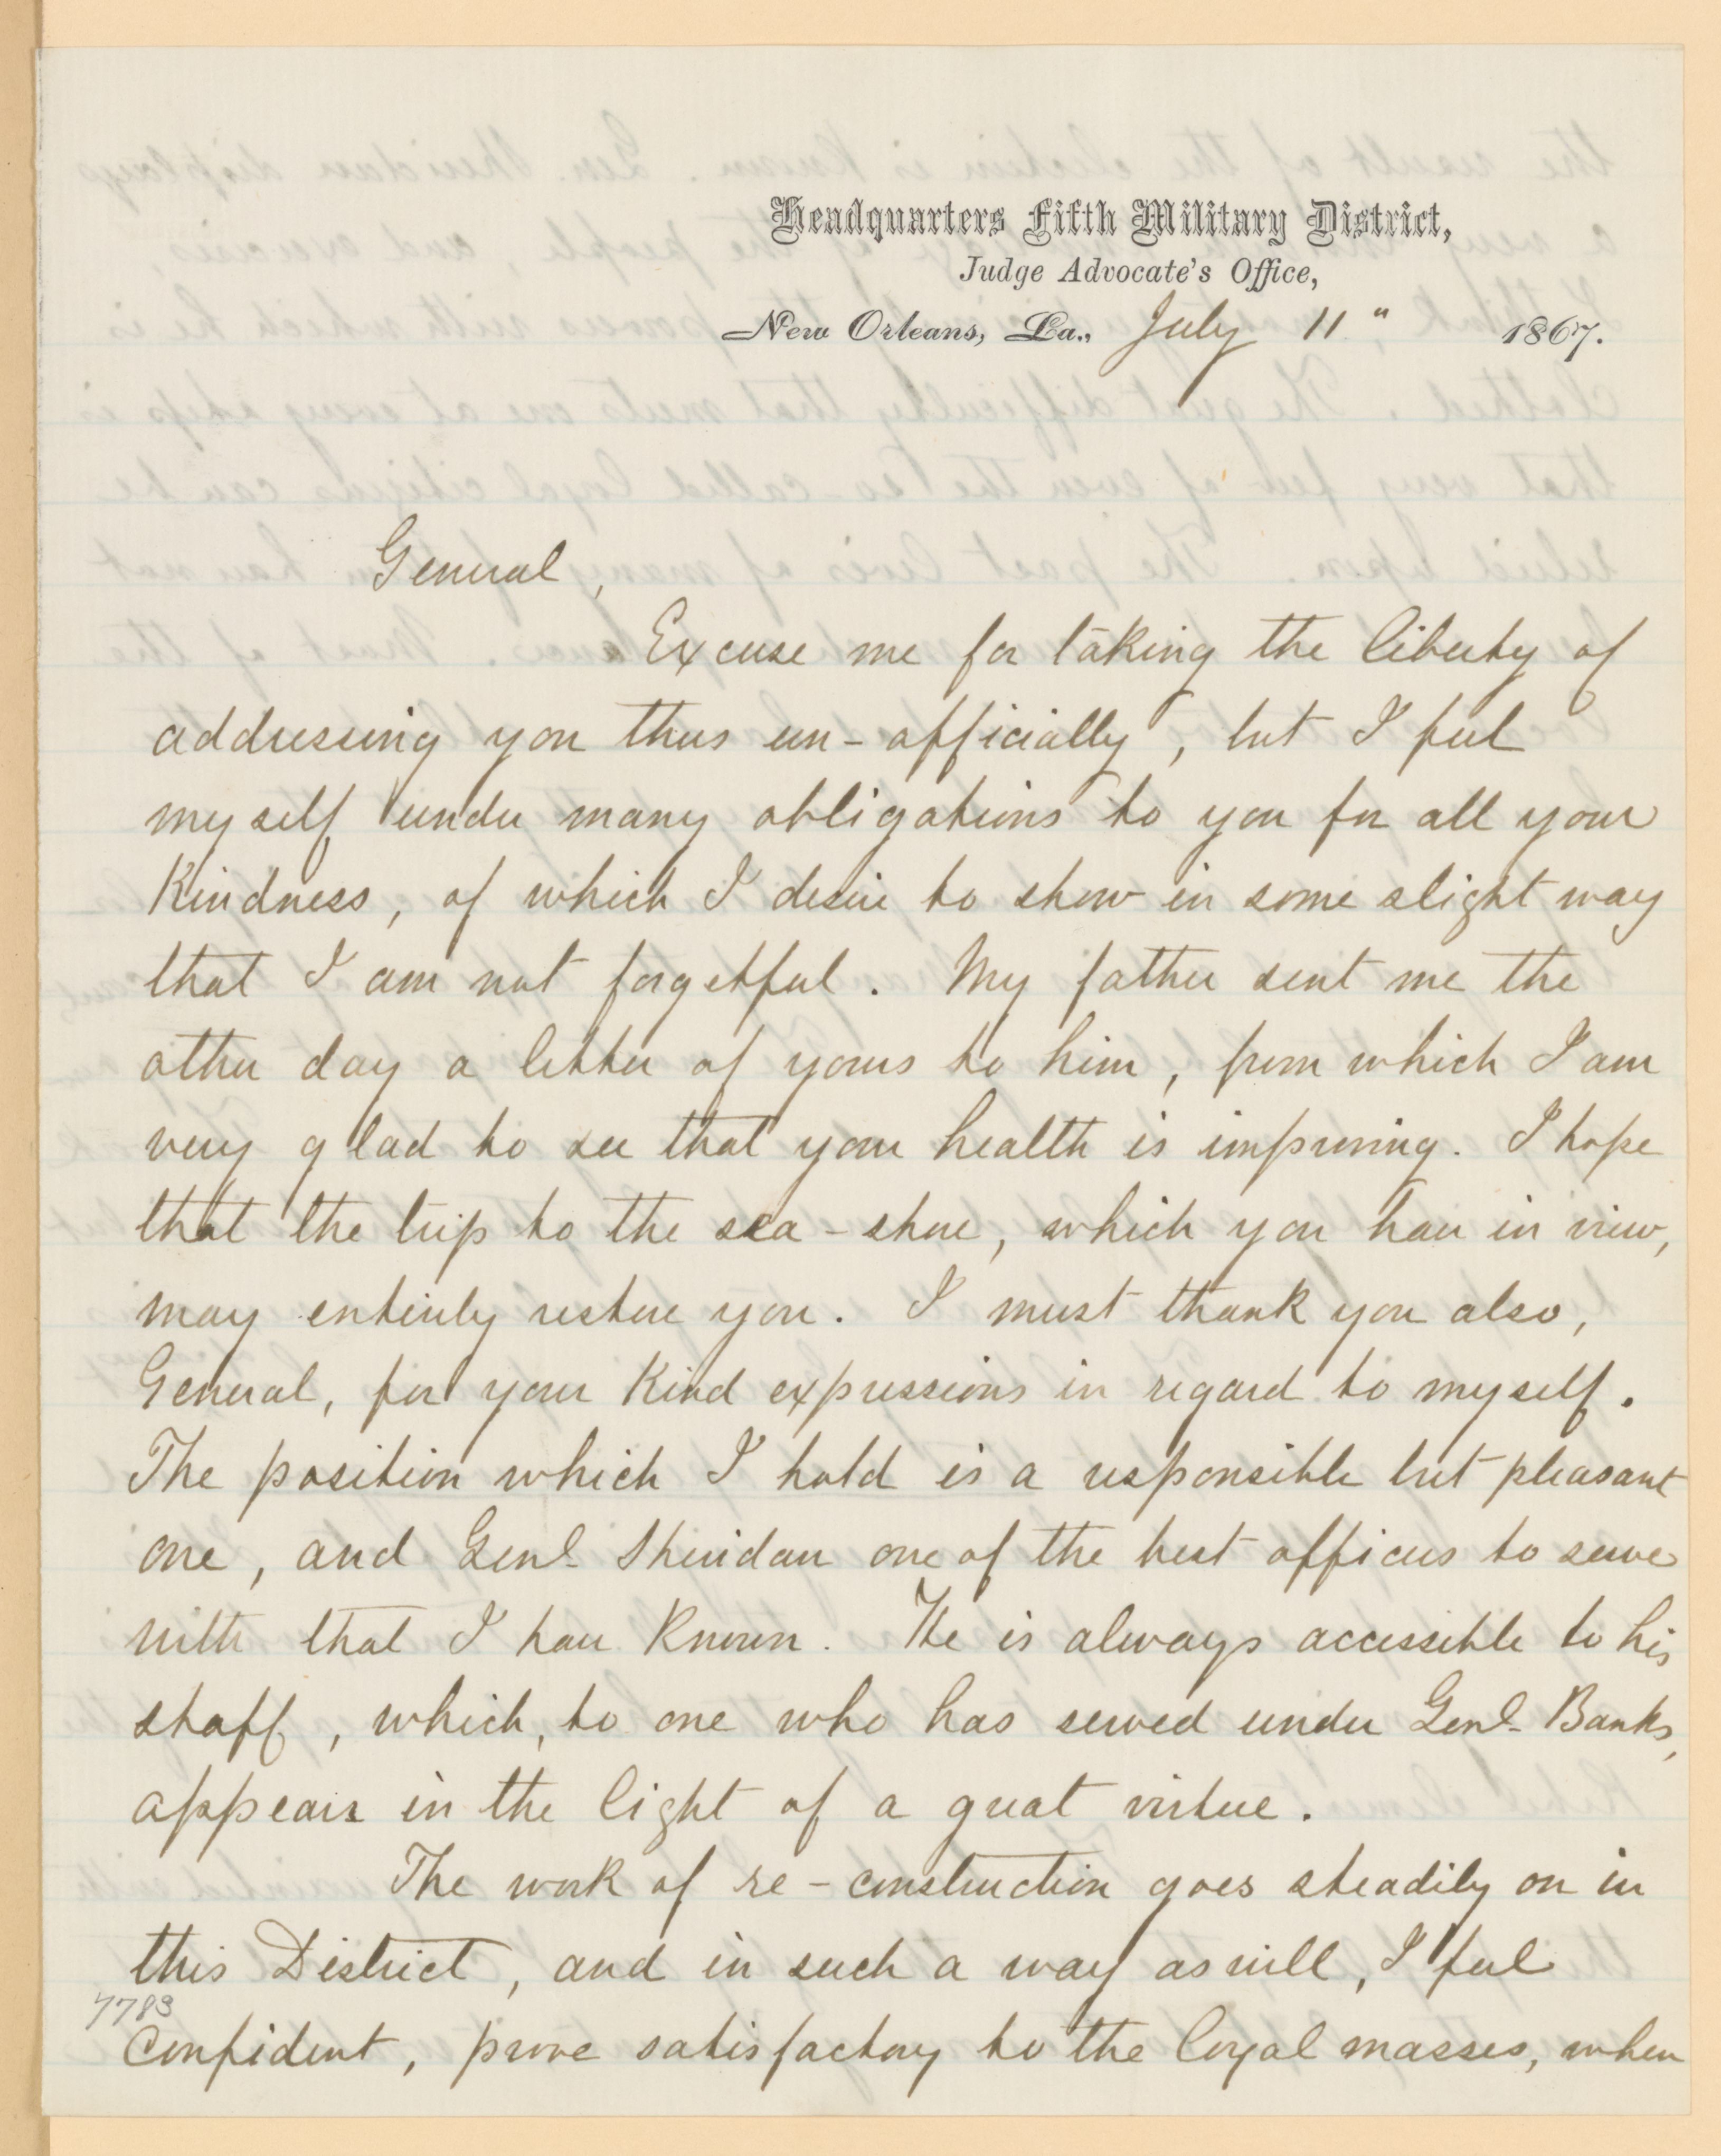 Headquarters Fifth Military District,
Judge Advocate's Office,
New Orleans, La., July 11" 1867.
General,
Excuse me for taking the liberty of
addressing you thus un-officially, but I feel
myself under many obligations to you for all your
kindness, of which I desire to show in some slight way
that I am not forgetful. My father sent me the
other day a letter of yours to him, from which I am
very glad to see that your health is improving. I hope
that the trip to the sea-shore, which you have in view,
may entirely restore you. I must thank you also,
General, for your kind expressions in regard to myself.
The position which I hold is a responsible but pleasant
one, and Genl. Sheridan one of the best officers to serve
with that I have known. He is always accessible to his
staff, which, to one who has served under Genl. Banks,
appears in the light of a great virtue.
The work of re-construction goes steadily on in
this District, and in such a way as will, I feel
7783
confident, prove satisfactory to the loyal masses, when